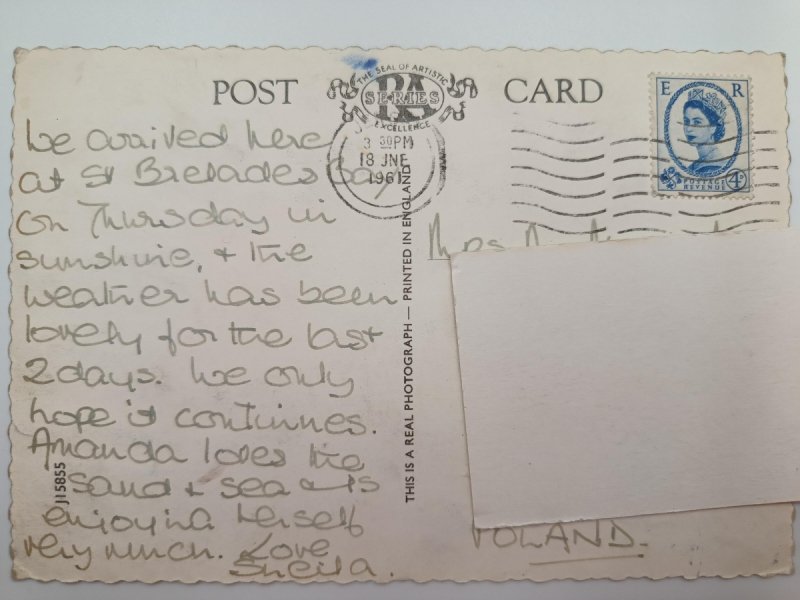 POST CARD
THE SEAL OF ARTISTIC
RA
SERIES
EXCELLENCE
3 30PM
18 JNE
1961
E R
POSTAGE
REVENUE
4D
We arrived here
at St Brelades Bay
on Thursday in
sunshine, & the
weather has been
lovely for the last
2 days. We only
hope it continues.
Amanda loves the
sand & sea & is
enjoying herself
very much. Love
Sheila.
J15855
THIS IS A REAL PHOTOGRAPH — PRINTED IN ENGLAND
Mrs
POLAND.